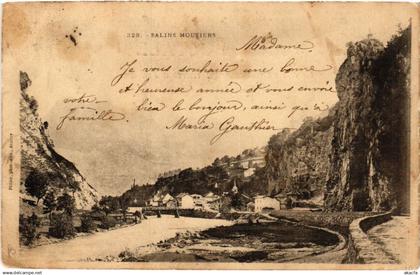 328. - SALINS MOUTIERS
Madame,
Je vous souhaite une bonne
et heureuse année et vous envoie
bien le bonjour, ainsi qu'à
votre famille.
Maria Gauthier